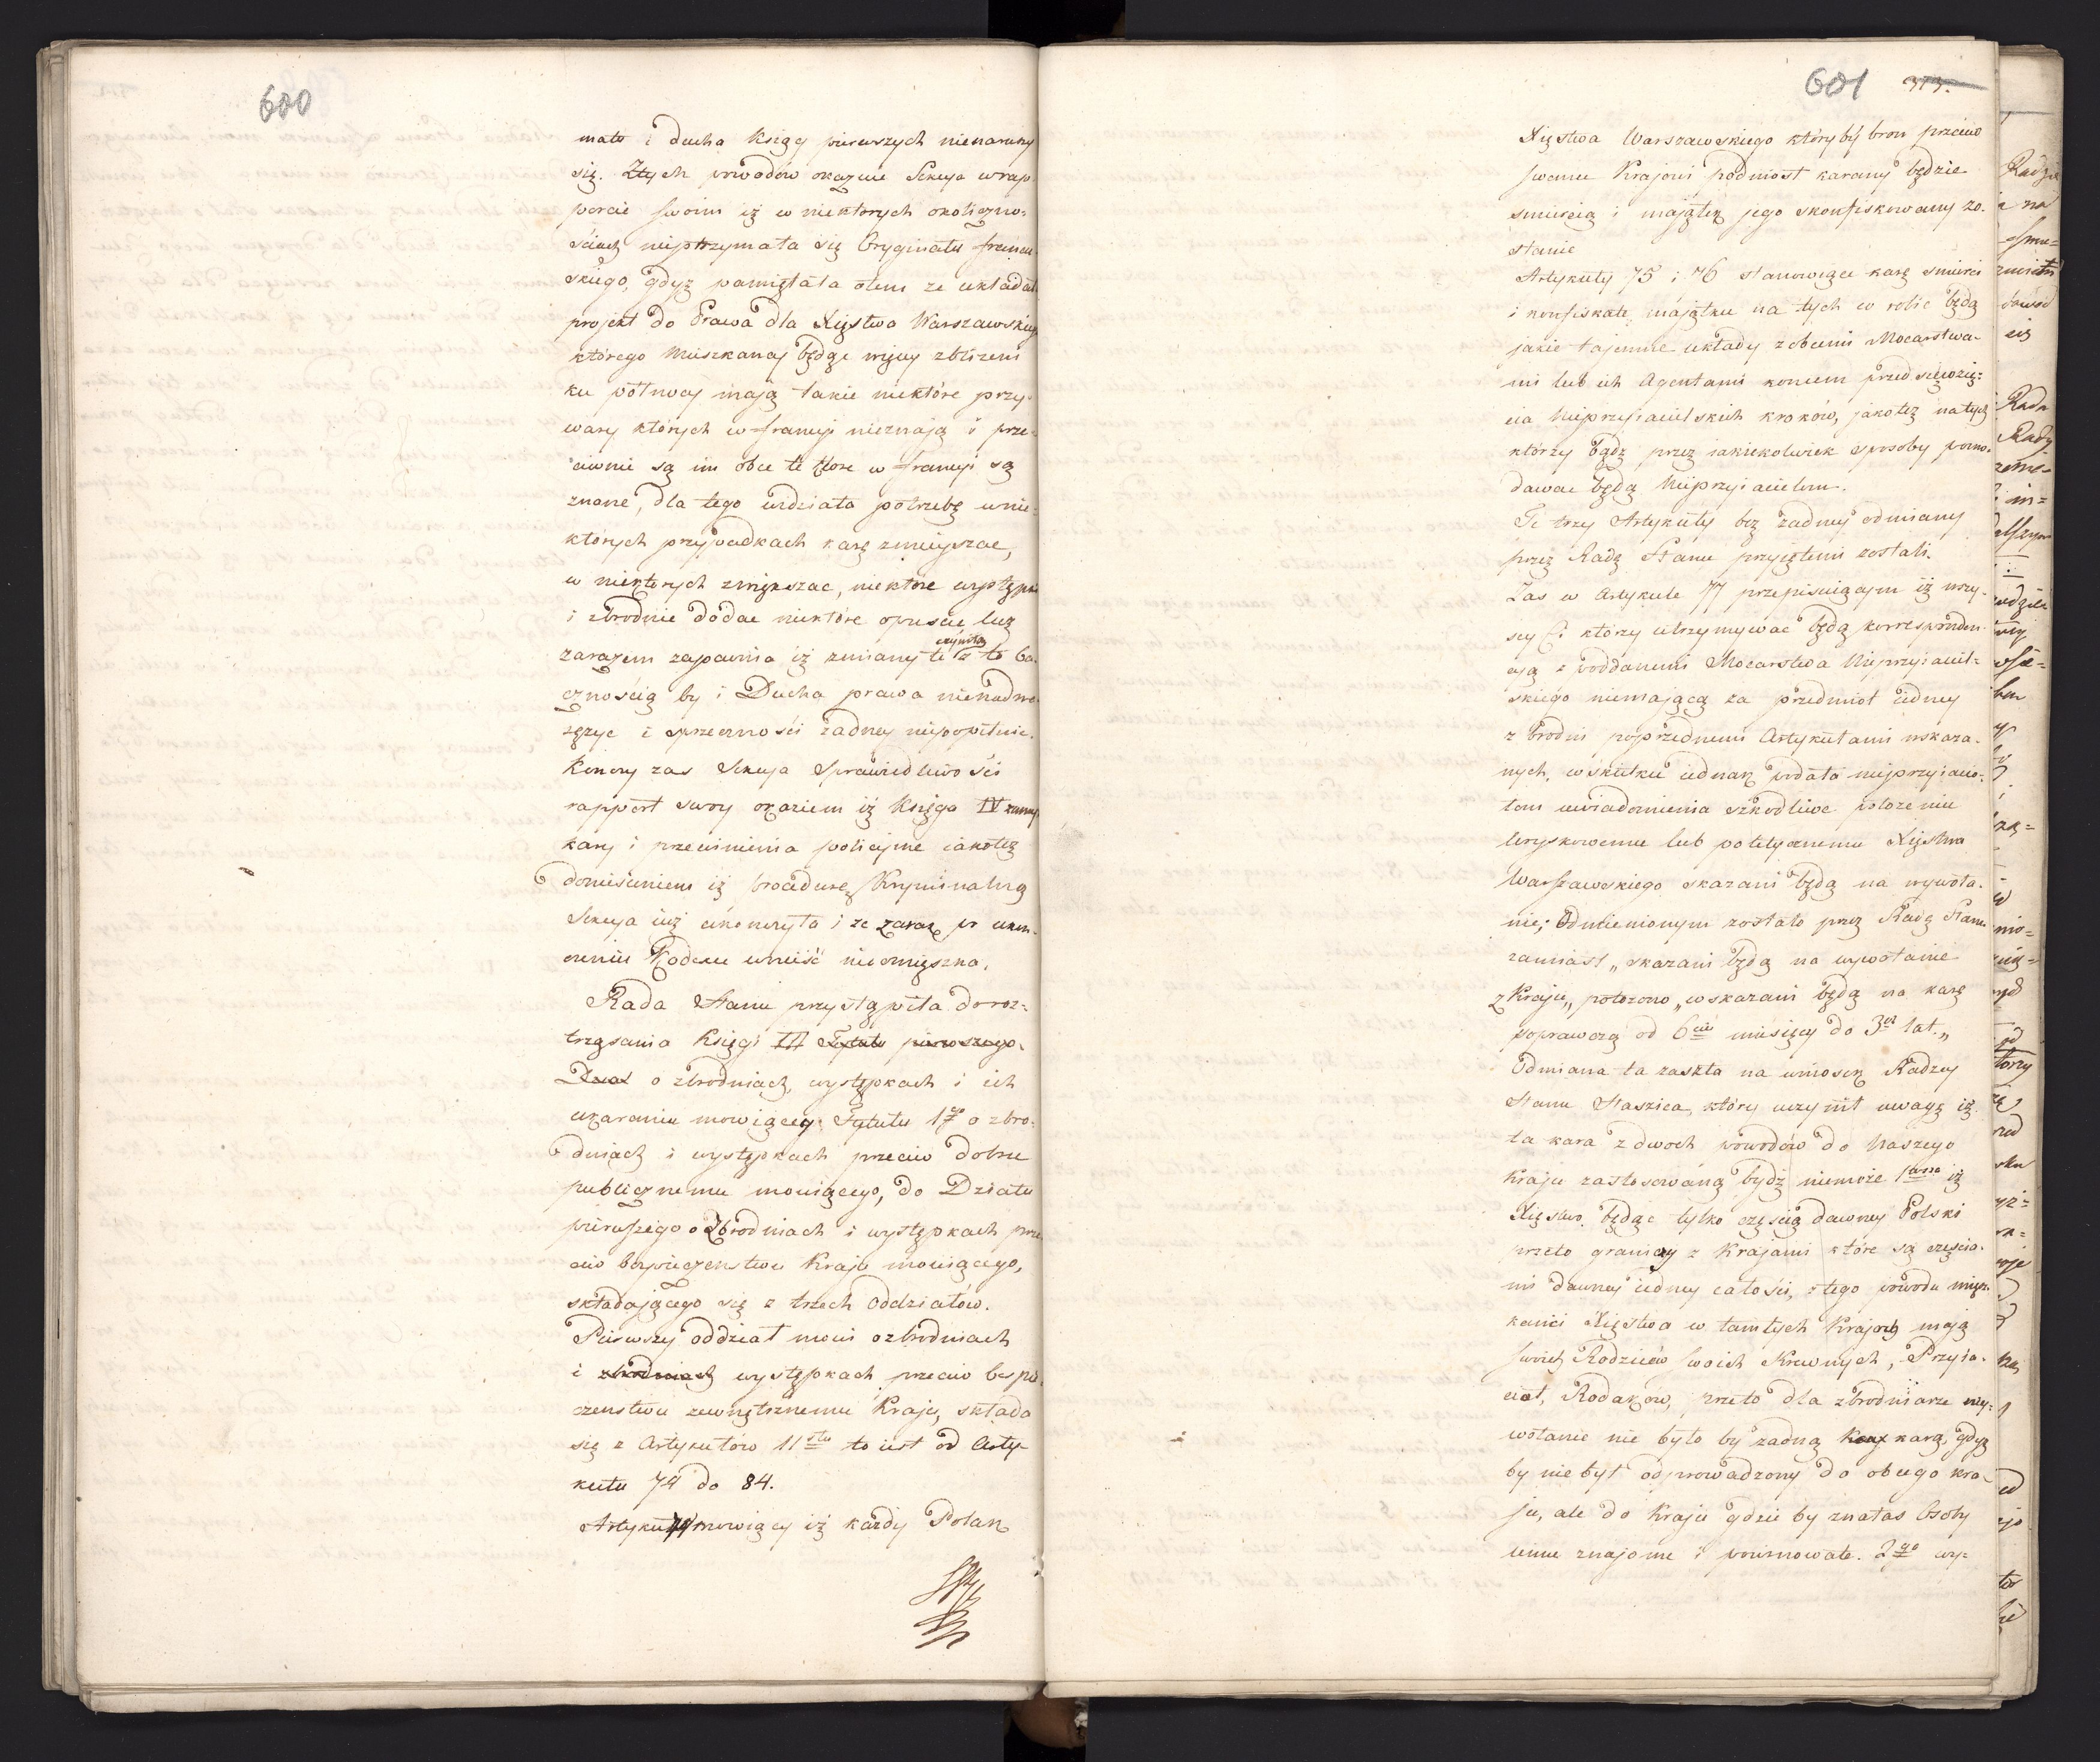 600
mato i ducha Księg pierwszych nienaruszy
się. Ztych powodów okazuie Sekcya wrap-
porcie swoim iż w niektorych okoliczno-
ściach nieprzymała się Oryginału francu-
skiego, gdyż pamiętała otem ze układał
projekt do Prawa dla Xięstwa Warszawskiego
którego Mieszkancy będąc więcey zblizeni
ku północy mają takie niektóre przy-
wary których w francyi nieznają i prze-
ciwnie są im obce te które w francyi są
znane, dla tego widziała potrzebę wnie-
których przypadkach karę zmnieyszac,
w niektorych zwiększac, niektóre występki
i zbrodnie dodac niektóre opuscić lecz
zarazem zapewnia iż zmiany te czyniła z tą ba-
cznością by i Ducha prawa nienadwe-
rężyc i sprzeczności żadney niepopełnic.
Konczy zas Sekcya Sprawiedliwości
rapport swoy okaziem iż Księga IV
kary i przewinienia policyine iakotez
doniesieniem iż procedurę Kryminalną
Sekcya iuż ukonczyła i ze zaraz po ukon-
czeniu Kodexu wnieść nieomięszka.
Rada Stanu przystąpiła do roz-
trząsania Księgi III Tytułu pierwszego.
Dział o zbrodniach, występkach i ich
ukaraniu mowiącey Tytułu 1go o zbro-
dniach i występkach przeciw dobru
publicznemu mowiącego, do Działu
pierwszego o Zbrodniach i występkach prze-
ciw bezpieczenstwu Kraju mówiącego,
składającego się z trzech Oddziałów.
Pierwszy oddział mowi o zbrodniach
i zbrodniach występkach przeciw bespie-
czenstwu zewnętrznemu Kraju, składa
się z Artykułów 11stu to iest od Arty-
kułu 74 do 84.
Artykuł 74 mowiący iż każdy Polak
601 313.
Xięstwa Warszawskiego któryby bron przeciw
swemu Krajowi podniosł karany będzie
smiercią i majątek jego skonfiskowany zo-
stanie
Artykuły 75 i 76 stanowiące karę smierci
i konfiskatę majątku na tych co robic będą
jakie tajemne układy z obcemi Mocarstwa-
mi lub ich Agentami koncem przedsięwzię-
cia Nieprzyiacielskich kroków, jakotez natych
którzy bądz przez iakiekolwiek sposoby pomo-
dawac będą Nieprzyiacielom.
Te trzy Artykuły bez żadney odmiany
przez Radę Stanu przyiętemi zostali.
Zas w Artykule 77 przepisuiącym iż wszy-
scy Ci którzy utrzymywać będą korresponden-
cyą z poddanemi Mocarstwa Nieprzyiaciel-
skiego niemającą za przedmiot iedney
z brodni poprzedniemi Artykułami wskaza-
nych, w skutku iednak podała nieprzyiacio-
łom uwiadomienia szkodliwe położeniu
Woyskowemu lub politycznemu Xięstwa
Warszawskiego skazani będą na wywoła-
nie; Odmienionym zostało przez Radę Stanu
zamiast „skazani będą na wywołanie
z Kraju„ położono „wskazani będą na karę
poprawczą od 6ciu miesięcy do 3ch lat.„
Odmiana ta zaszła na wniosek Radzcy
Stanu Staszica, który uczynił uwagę iż
ta kara z dwoch powodów do Naszego
Kraju zastosowaną bydź niemoże 1mo iż
Xięstwo będąc tylko częścią dawney Polski
przeto graniczy z Krajami które są częścia-
mi dawney iedney całości, z tego powodu miesz-
kańci Xięstwa w tamtych Krajach mają
swoich Rodziców swoich Krewnych, Przyia-
ciół, Rodaków, przeto dla zbrodniarza wy-
wołanie nie było by żadną karą, gdyż
by nie był odprowadzony do obcego kra-
ju, ale do Kraju gdzie by znałas Osoby
iemu znajome i powinowate. 2do wy-